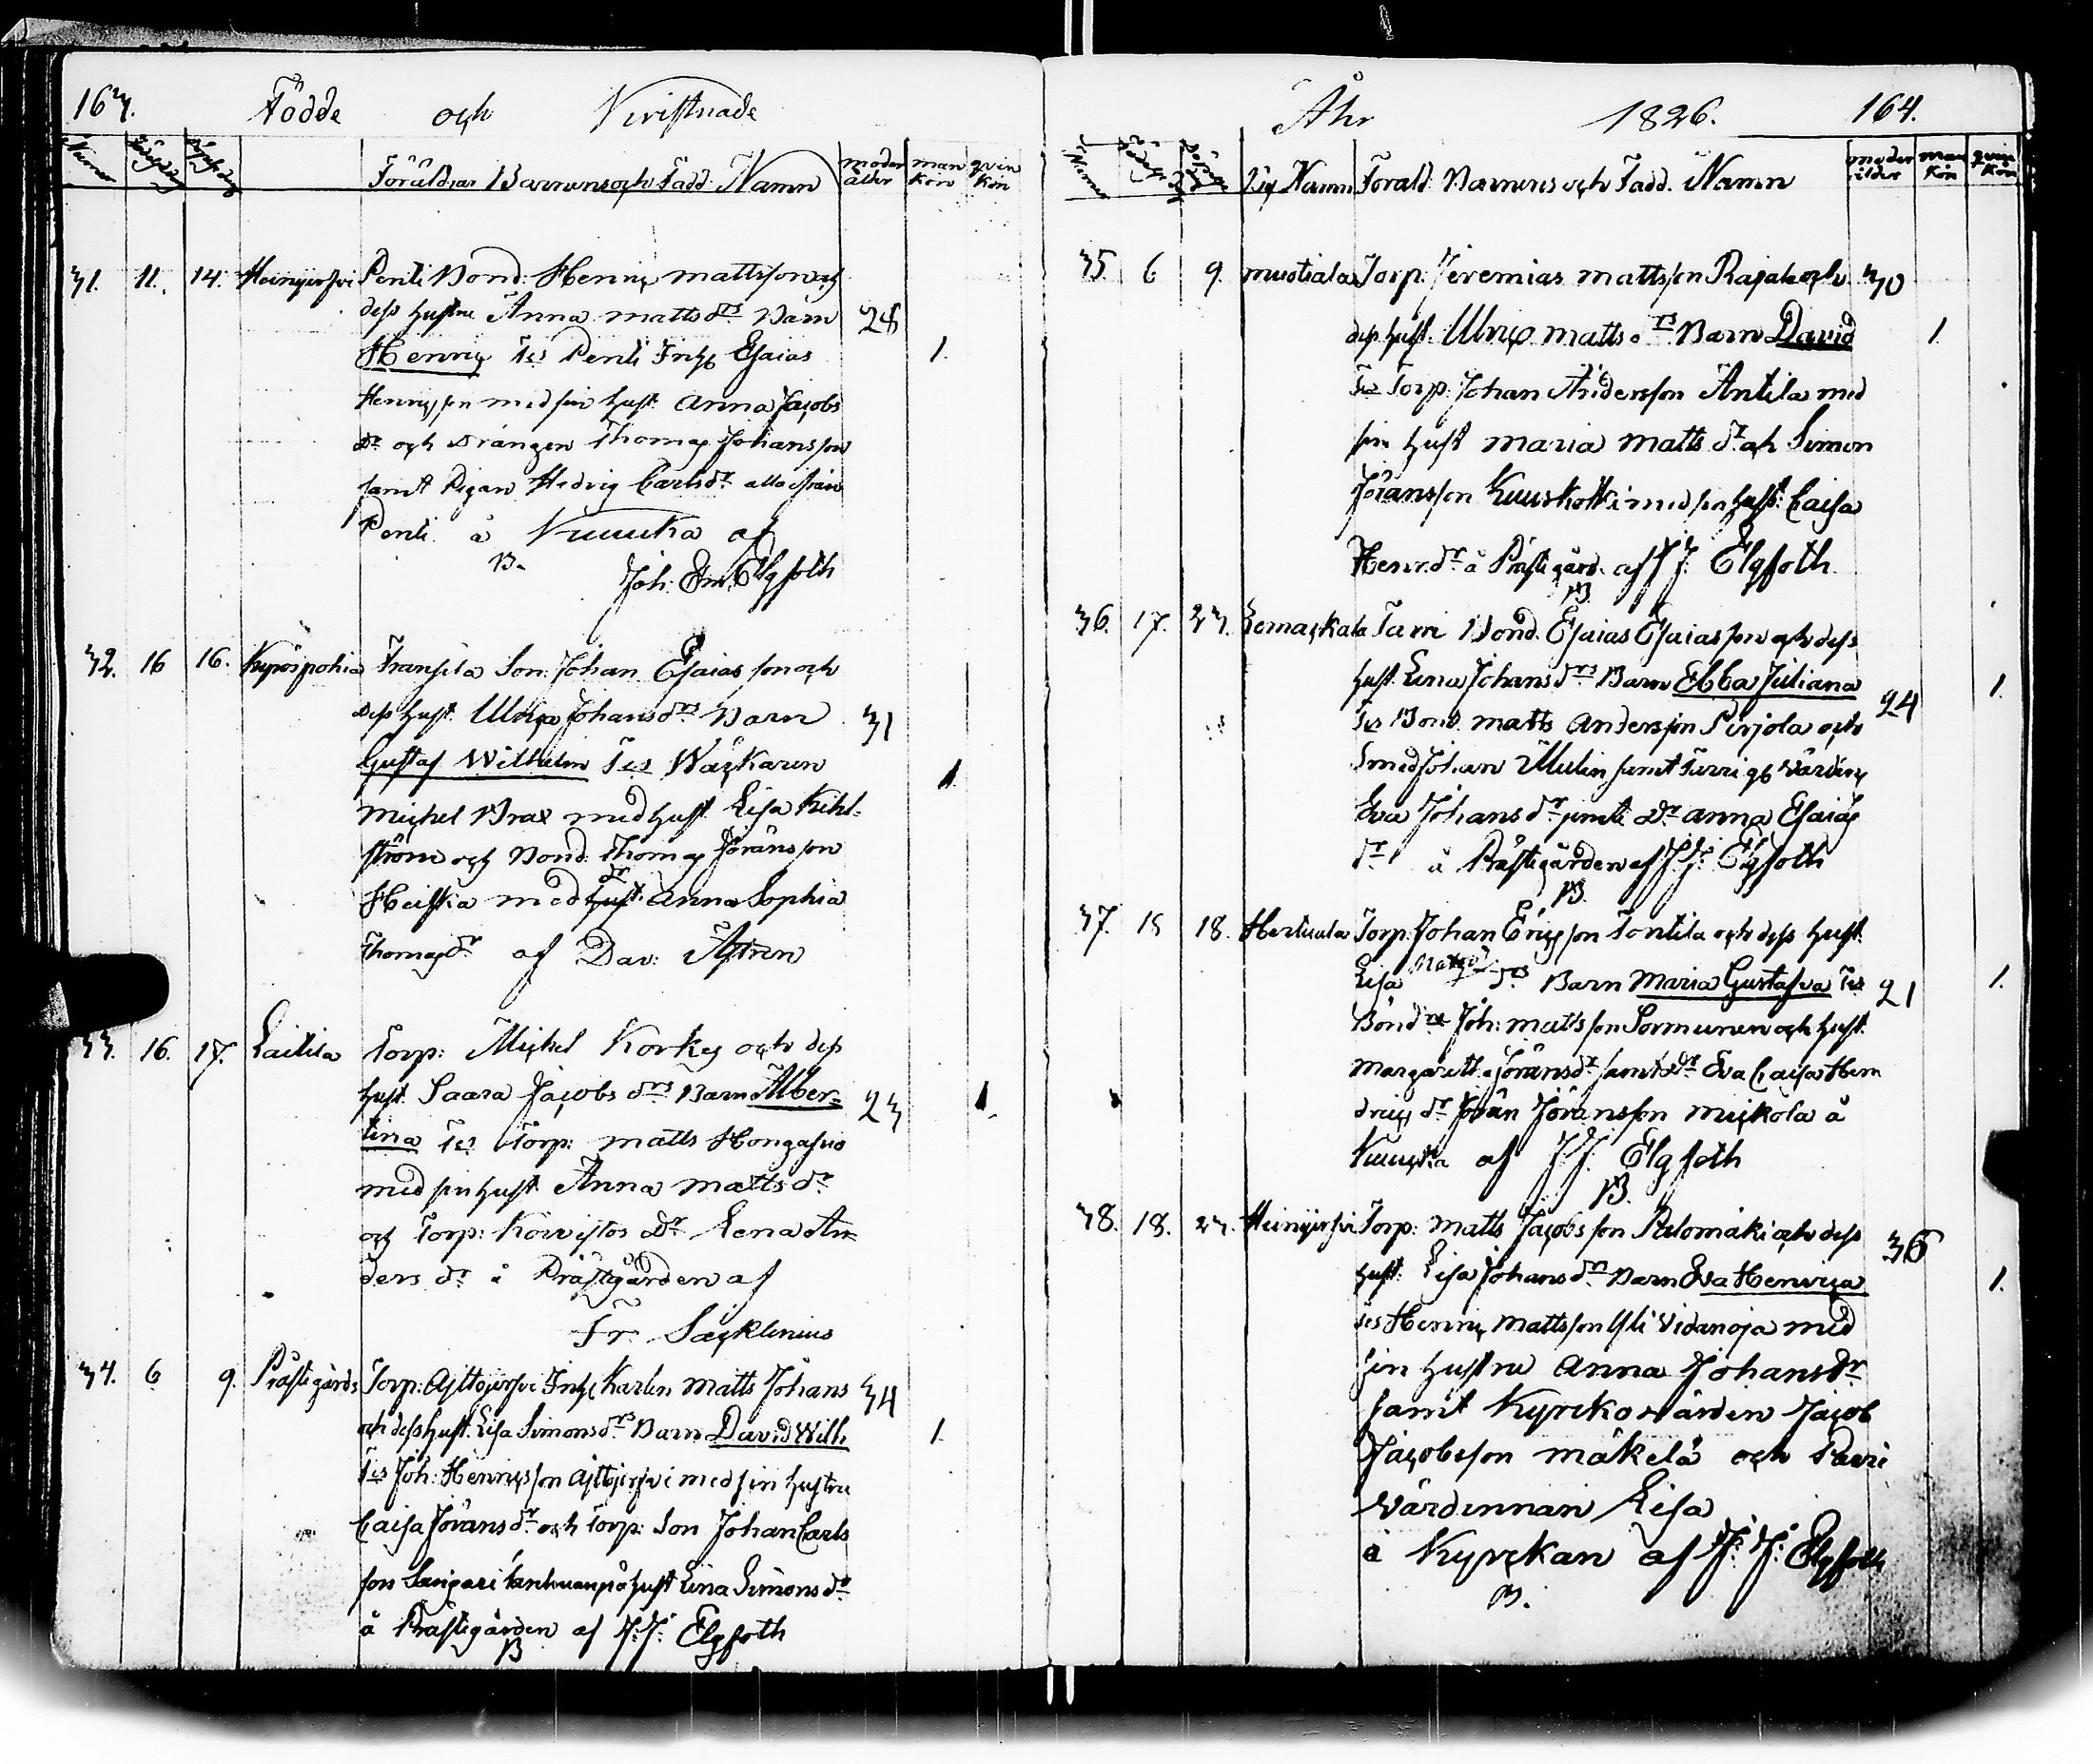 163.
Födde och Kristnade
Numer
Föräldrar Barnens och Fadd: Namn
moder ålder
man kön
qvin kön
31. 11. 14. Heinijerfvi Penti Bond: Henric Mattsson och
dess hustru Anna Mattsdrs Barn 28
Henric Tes Penti Inhs Esaias 1.
Henricsson med sin hust. Anna Jacobs
dr och Drängen Thomas Johansson
samt Pigan Hedvig Carlsdr alla ifrån
Penti å Kuuska af
B. Joh: Em. Elgfoth
32. 16 16. Kyröspohia Fransila Son: Johan Esaiasson och
dess hust. Ulrica Johansdrs Barn 31
Gustaf Wilhelm Tes Wäckaren 1
Michel Brax med hust. Lisa Kihl-
ström och Bond: Thomas Jöransson
Heiska med hust. dr Anna Sophia
Thomasdr af Dav: Astren
33. 16. 17. Laitila Torp: Michel Korkes och dess
hust. Saara Jacobs drs Barn Alber- 23 1
tina Tes Torp: Matts Hongasuo
med sin hust. Anna Mattsdr
och Torp: Koivistos Dr Lena An-
ders dr å Prästgården af
Fr. Sacklenius
34. 6 9. Prästegårds Torp: Ajttojerfvi Inhs Karlen Matts Johans 34
och dess hust. Lisa Simonsdrs Barn David Wilh 1.
Tes Joh: Henricsson Ajttojerfvi med sin hustru
Caisa Jöransdr och Torp: Son Johan Carls
son Sangari hust Lina Simonsdr
å Prästegården af J: J: Elgfoth
B
Åhr 1826. 164.
Numer
By Namn Föräld: Barnens och Fadd. Namn
moder ålder
man kön
qvin kön
35. 6 9. Mustiala Torp: Jeremias Mattsson Rajala och 30
dess hust: Ulrica Mattsdrs Barn David 1
Tes Torp: Johan Andersson Antila med
sin hust Maria Matts dr och Simon
Jöransson Kuuskoski med sin hust: Caisa
Henr. dr å Prästegård. af J J: Elgfoth.
B.
36. 17. 23. Lemackala Tarri Bond. Esaias Esaiasson och dess
hust. Lena Johans drs Barn Ebba Juliana 24 1.
Tes Bond. Matts Andersson Pirjola och
Smed Johan Mulin samt Tarri gs Värdin
Eva Johans dr jemte Dr Anna Esaias
dr å Prästegården af J: J: Elgfoth
B.
37. 18 18. Hertuala Torp: Johan Ericsson Tontila och dess hust:
Lisa drs Barn Maria Gustafva Tes 21 1.
Bond Joh: Mattsson Sormunen och hust.
Margareta Jöransdr samt Dr Eva Caisa Hen
dric dr Jöran Jöransson Mickola å
Kuuska af J J: Elgfoth
B.
38. 18. 23. Heinijerfvi Torp: Matts Jacobsson Palomäki och dess 36
hust: Lisa Johans drs Barn Eva Henrica 1.
Tes Henric Mattsson Yli Vidanoja med
sin hustru Anna Johansdr
samt Kyrckovärden Jacob
Jacobsson Mäkelä och Pavri
värdinnan Lisa
å Kyrckan af J: J: Elgfoth
B.